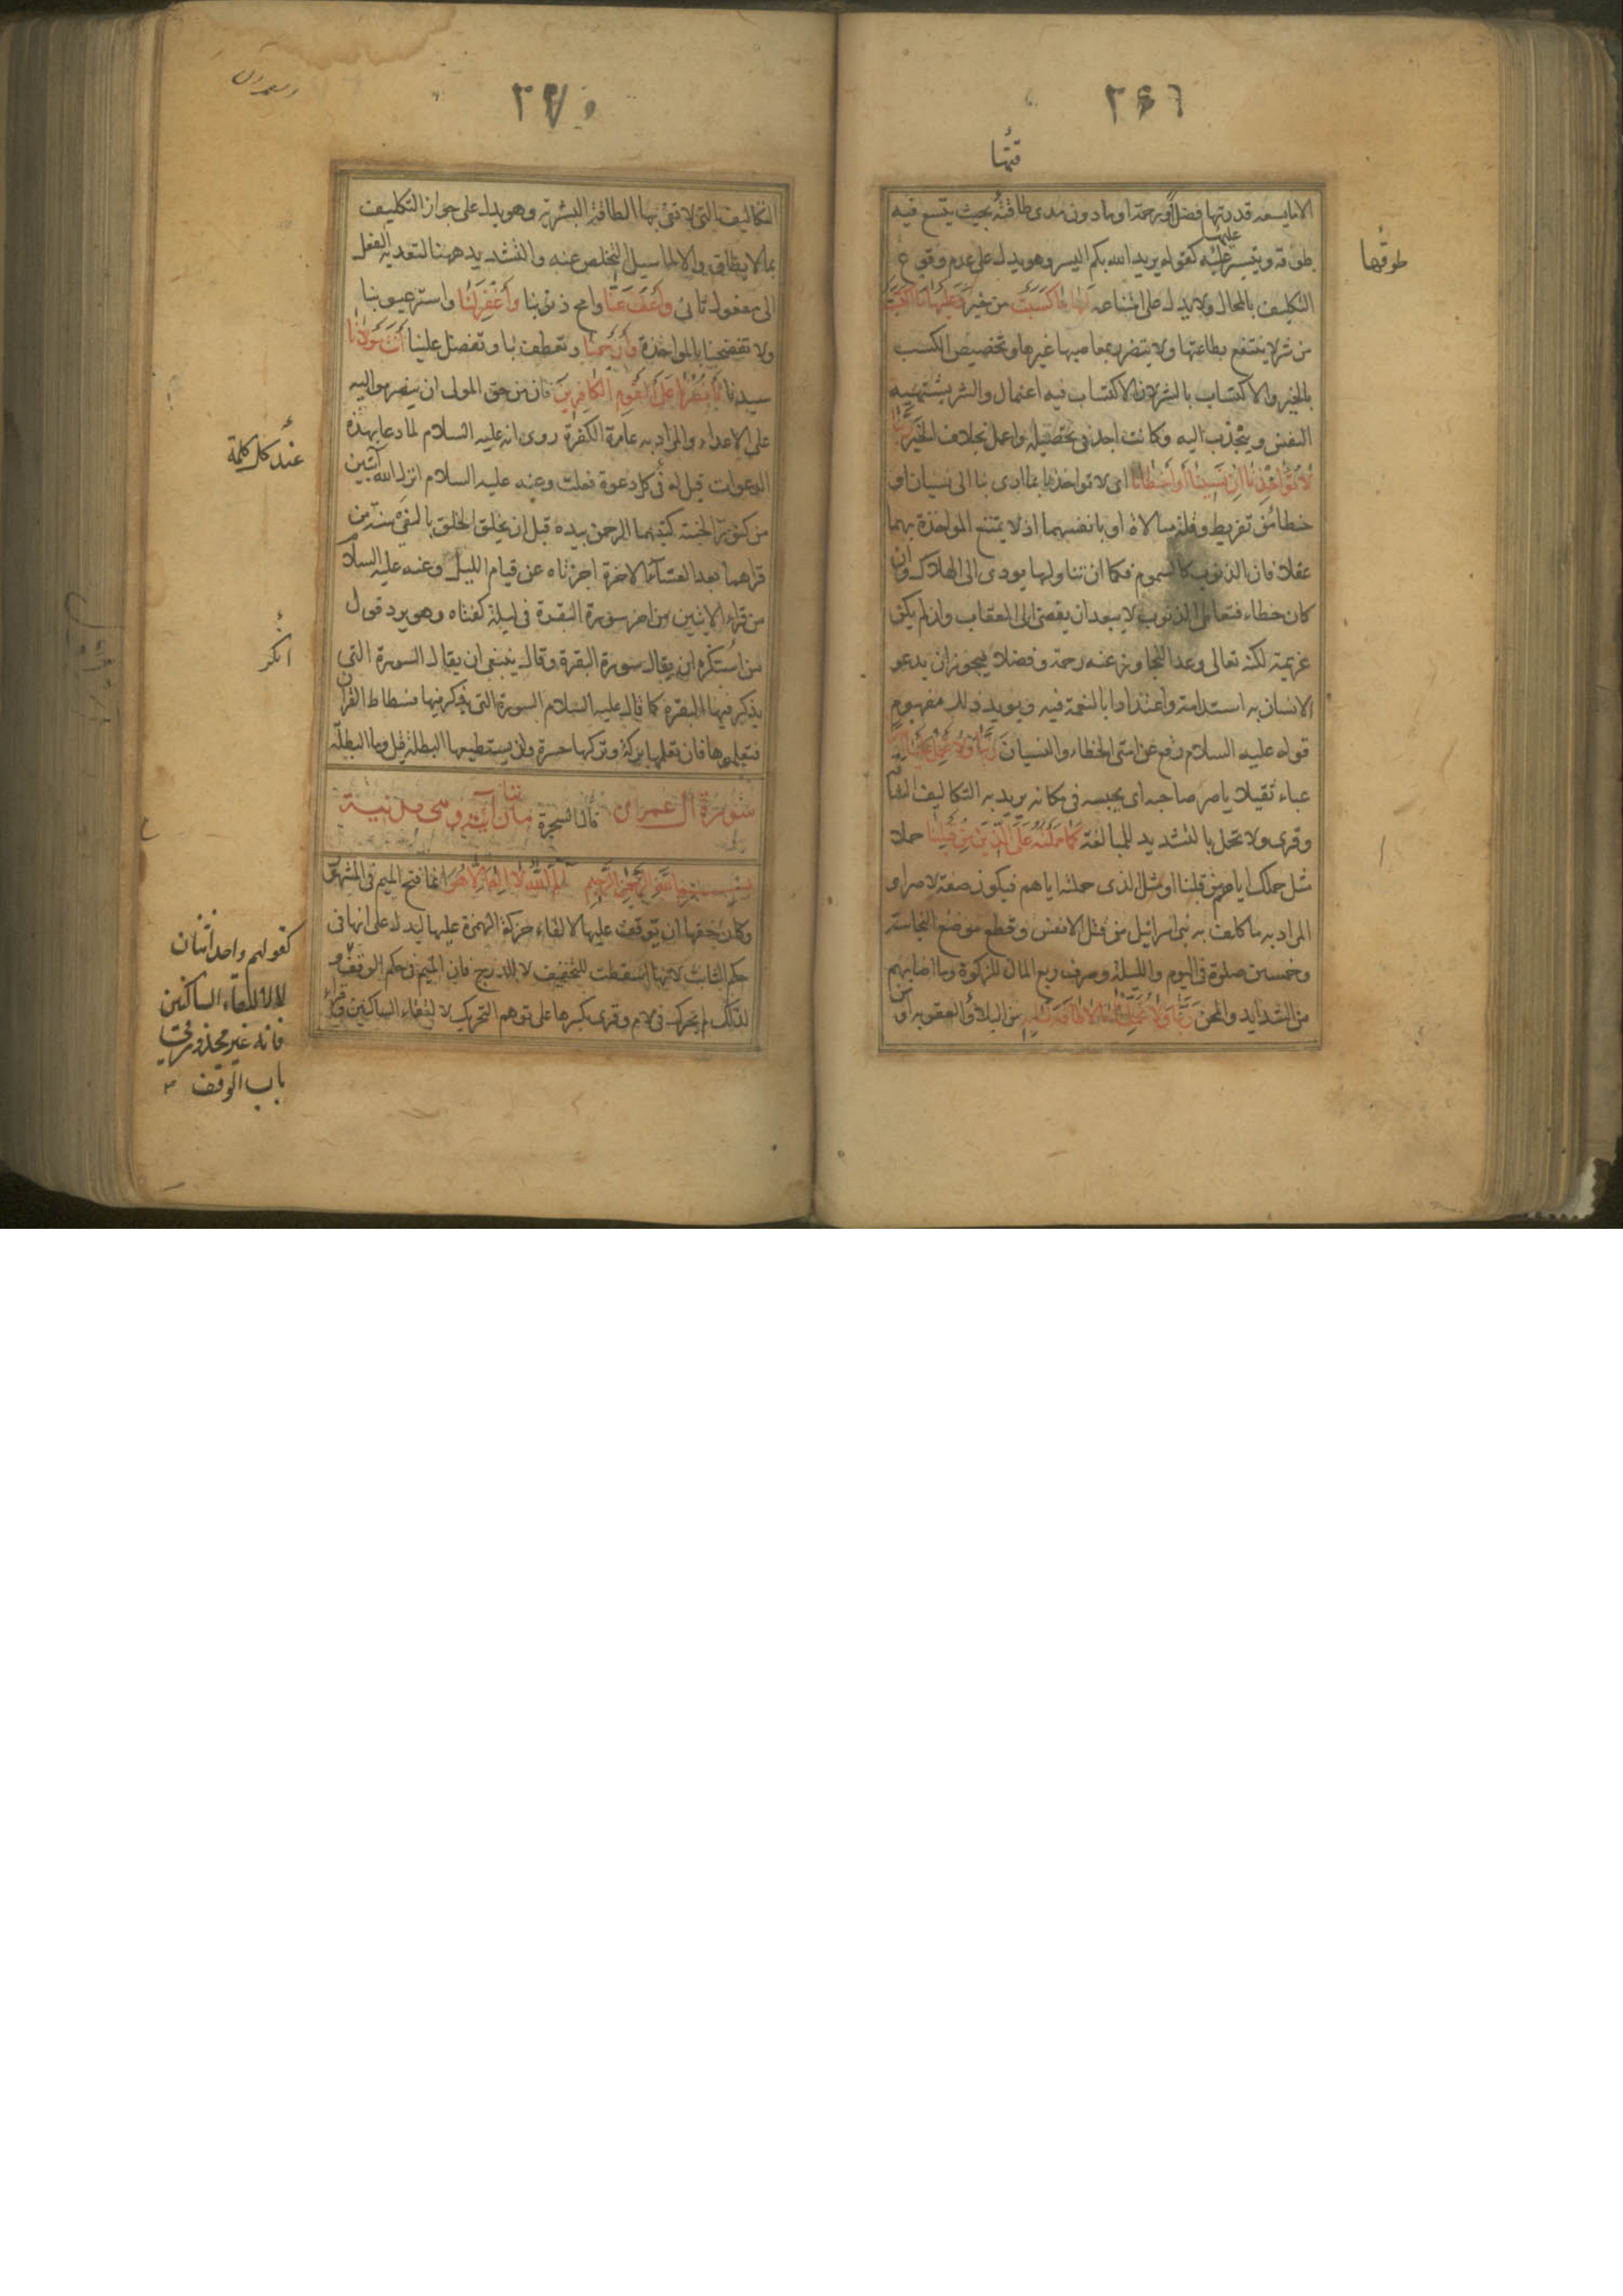 ٣٦٩
قتها
الا ما يسعه قدرتها فضلا ورحمة او ما دون مدى طاقتها بحيث يتسع فيه
طوقه ويتيسر عليه كقوله يريد الله بكم اليسر وهو يدل على عدم وقوع
عليها
طوقها
التكليف بالمحال ولا يدل على امتناعه لها ما كسبت من خير وعليها ما اكتسبت
من شر لا ينتفع بطاعتها ولا يتضرر بمعاصيها غيرها وتخصيص الكسب
بالخير والاكتساب بالشر لان الاكتساب فيه اعتمال والشر يشتهيه
النفس وينجذب اليه وكانت اجد في تحصيله واعمل بخلاف الخير ربنا
لا تؤاخذنا ان نسينا او اخطأنا اى لا تواخذنا بما ادى بنا الى نسيان او
خطا من تفريط وقلة مبالاة او بانفسهما اذ لا يمتنع المواخذة بهما
عقلا فان الذنوب كالسموم فكما ان تناولها يودى الى الهلاك وان
كان خطاء فتعاطى الذنوب لا يبعد ان يفضى الى العقاب وان لم يكن
عزيمة لكنه تعالى وعد التجاوز عنه رحمة وفضلا فيجوز ان يدعو
الانسان به استدامة واعتدادا بالنعمة فيه ويويد ذلك مفهوم
قوله عليه السلام رفع عن امتى الخطاء والنسيان ربنا ولا تحمل علينا اصرا
عباء ثقيلا ياصر صاحبه اى يحبسه في مكانه يريد به التكاليف الشاقة
وقرى ولا تحمل بالتشديد للمبالغة كما حملته على الذين من قبلنا حملا
مثل حملك اياه من قبلنا او مثل الذى حملته اياهم فيكون صفة لاصرا و
المراد به ما كلف به بنى اسرائيل من قتل الانفس وقطع موضع النجاسة
وخمسين صلوة في اليوم والليلة وصرف ربع المال للزكوة وما اصابهم
من الشدايد والمحن ربنا ولا تحملنا ما لا طاقة لنا به من البلاء والعقوبه او من
٣٧٠
التكاليف التى لا تفى بها الطاقة البشرية وهو يدل على جواز التكليف
بما لا يطاق والا لما سيل التخلص عنه والتشديد ههنا لتعديه الفعل
الى مفعول ثانى واعف عنا وامح ذنوبنا واغفر لنا واستر عيوبنا
ولا تفضحنا بالمواخذة وارحمنا وتعطف بنا وتفضل علينا انت مولانا
سيدنا فانصرنا على القوم الكافرين فان من حق المولى ان ينصر مواليه
على الاعداء والمراد به عامة الكفرة روى انه عليه السلام لما دعا بهذه
الدعوات قيل له في كل دعوة فعلت وعنه عليه السلام انزل الله آيتين
عند كل كلمة
من كنوز الجنة كتبهما الرحمن بيده قبل ان يخلق الخلق بالفى سنة من
قراهما بعد العشاء الاخرة اجزتاه عن قيام الليل وعنه عليه السلام
من قراء الايتين من اخر سورة البقرة في ليلة كفتاه وهو يرد قول
من استنكره ان يقال سورة البقرة وقال ينبغى ان يقال السورة التى
انكر
يذكر فيها البقرة كما قال عليه السلام السورة التى يذكر فيها فسطاط القران
فتعلموها فان تعلمها بركة وتركها حسرة ولن يستطيعها البطلة قيل وما البطلة
قال السحرة
سورة ال عمران
مائتان آية وهى مدنية
بسم الله الرحمن الرحيم الم الله لا اله الا هو انما فتح الميم في المشهور
وكان حقها ان توقف عليها لالقاء حركة الهمزة عليها ليدل على انها في
حكم الثابت لانها اسقطت للتخفيف لا للدرج فان الميم في حكم الوقف
كقولهم واحد اثنان
لا لالتقاء الساكنين
فانه غير محذور في
باب الوقف
لذلك لم يحرك في لام وقرى بكسرها على توهم التحريك لالتقاء الساكنين